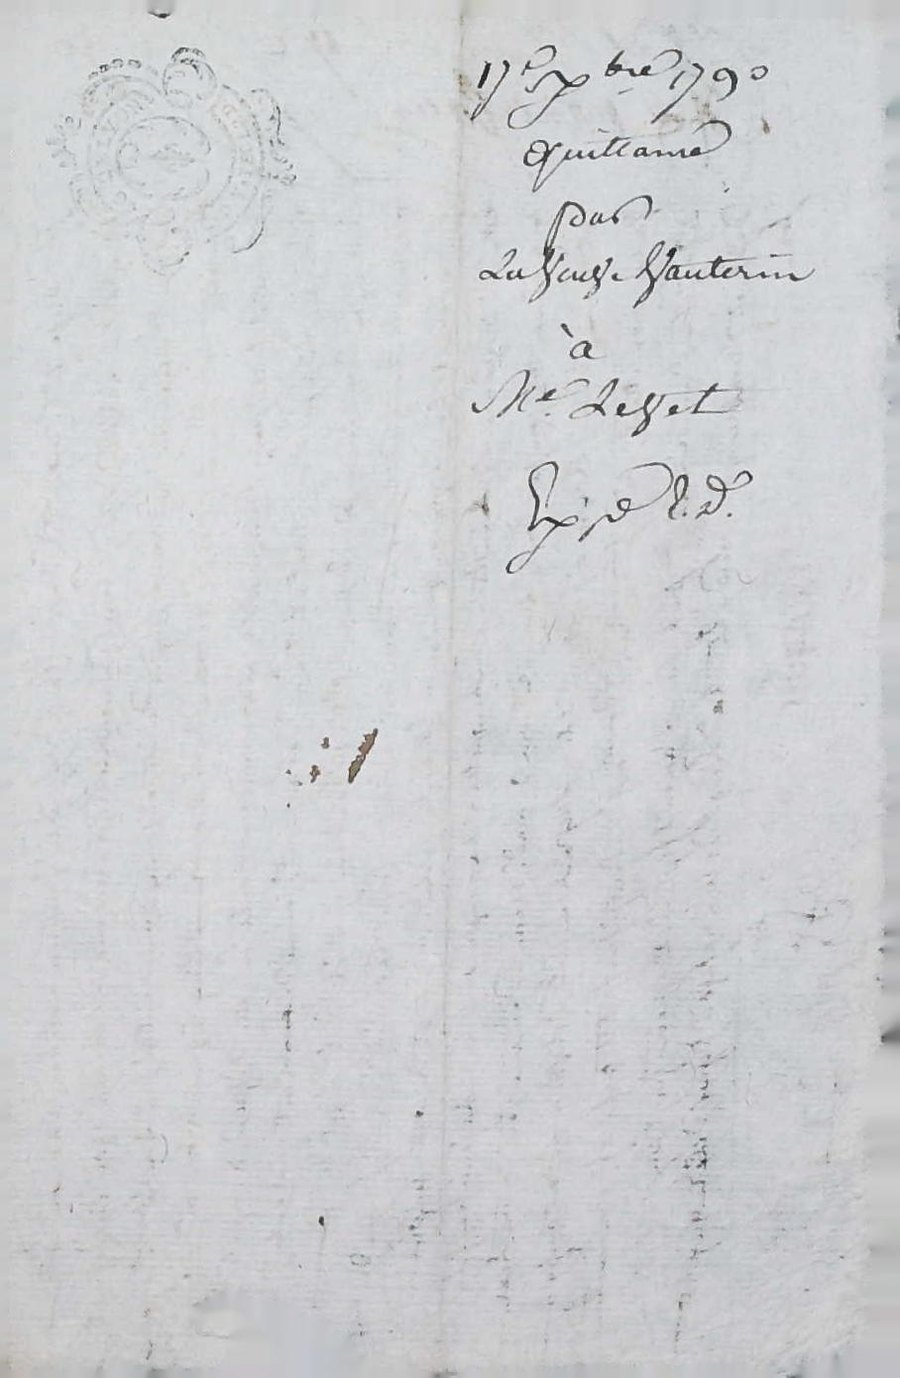 17e 7bre 1790
Quittance
par
La Veuve Vauterin
à
Me. Levet
Exp. de